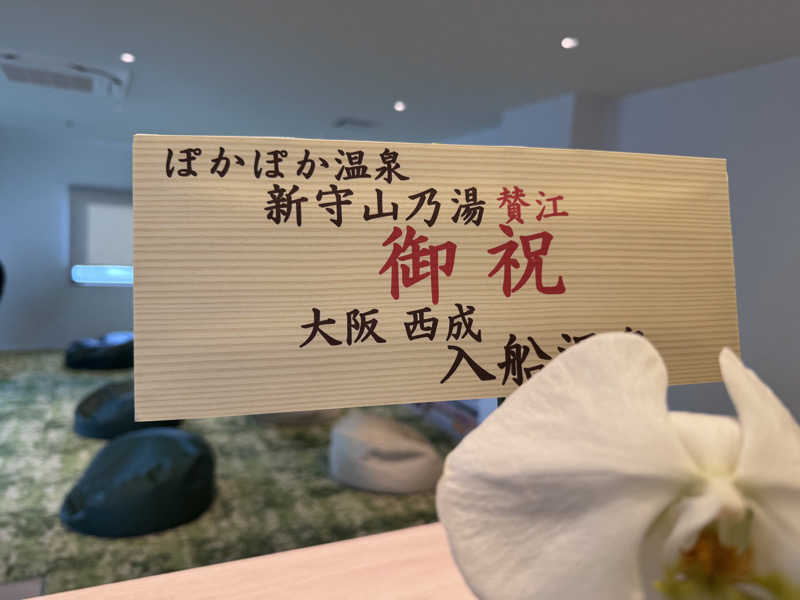 ぽかぽか温泉
新守山乃湯 賛江
御祝
大阪 西成
入船温